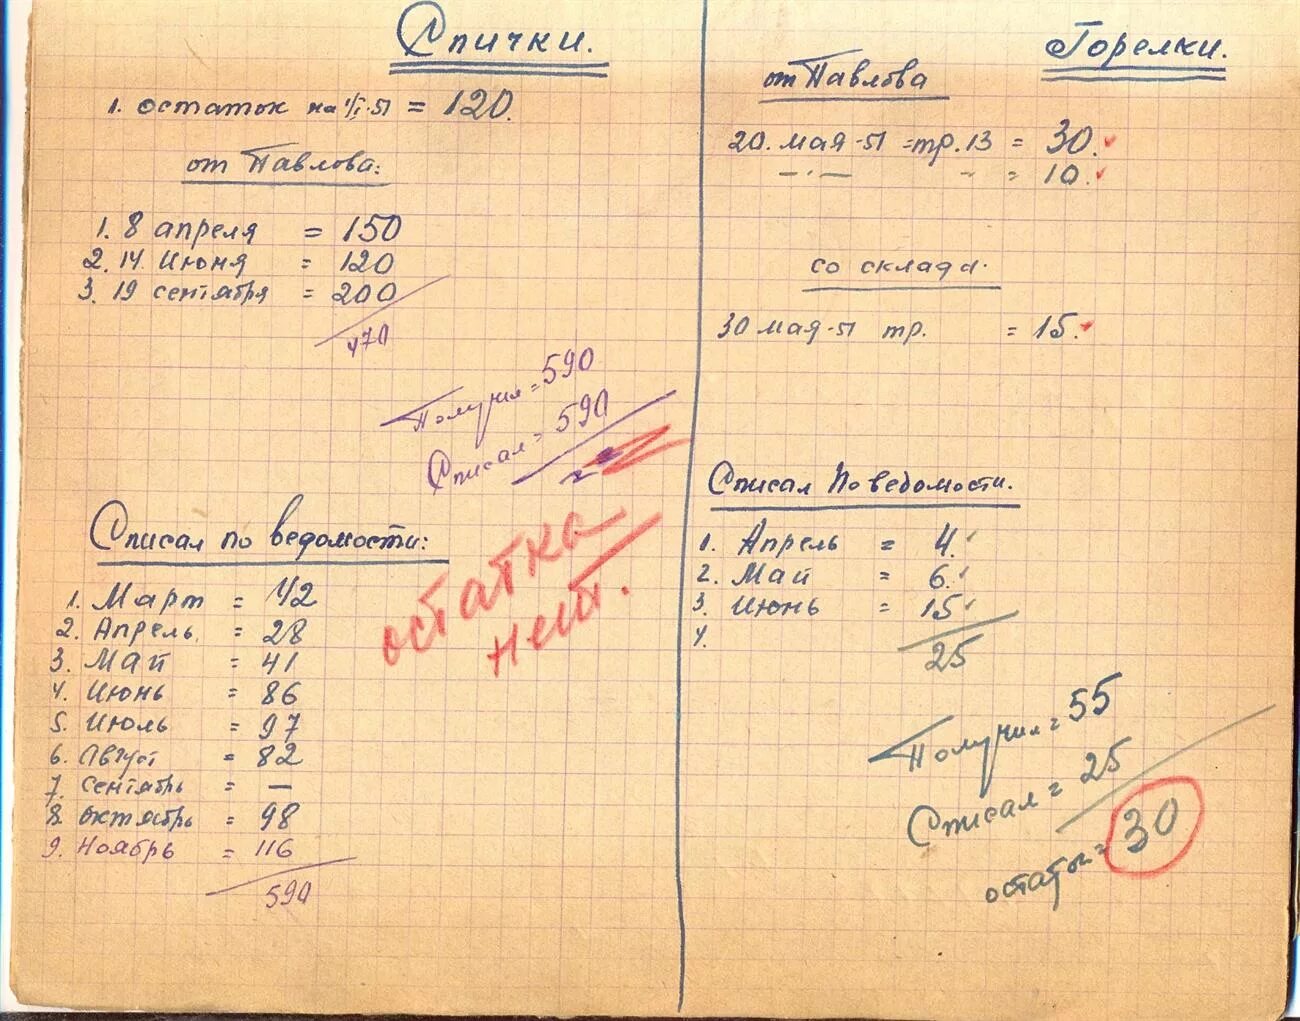 Спички.
1. остаток на 1/I-51 = 120.
от Павлова:
1. 8 апреля = 150
2. 14 Июня = 120
3. 19 сентября = 200
470
Получил = 590
Списал = 590
остатка
нет.
Списал по ведомости:
1. Март = 42
2. Апрель. = 28
3. Май = 41
4. Июнь = 86
5. Июль = 97
6. Август = 82
7. Сентябрь = —
8. октябрь = 98
9. Ноябрь = 116
590
Горелки.
от Павлова
20. мая-51 = тр. 13 = 30.
—·— " = 10.
со склада.
30 мая-51 тр. = 15.
Списал По ведомости.
1. Апрель = 4.
2. Май = 6.
3. Июнь = 15
4.
25
Получил = 55
Списал = 25
остаток = 30